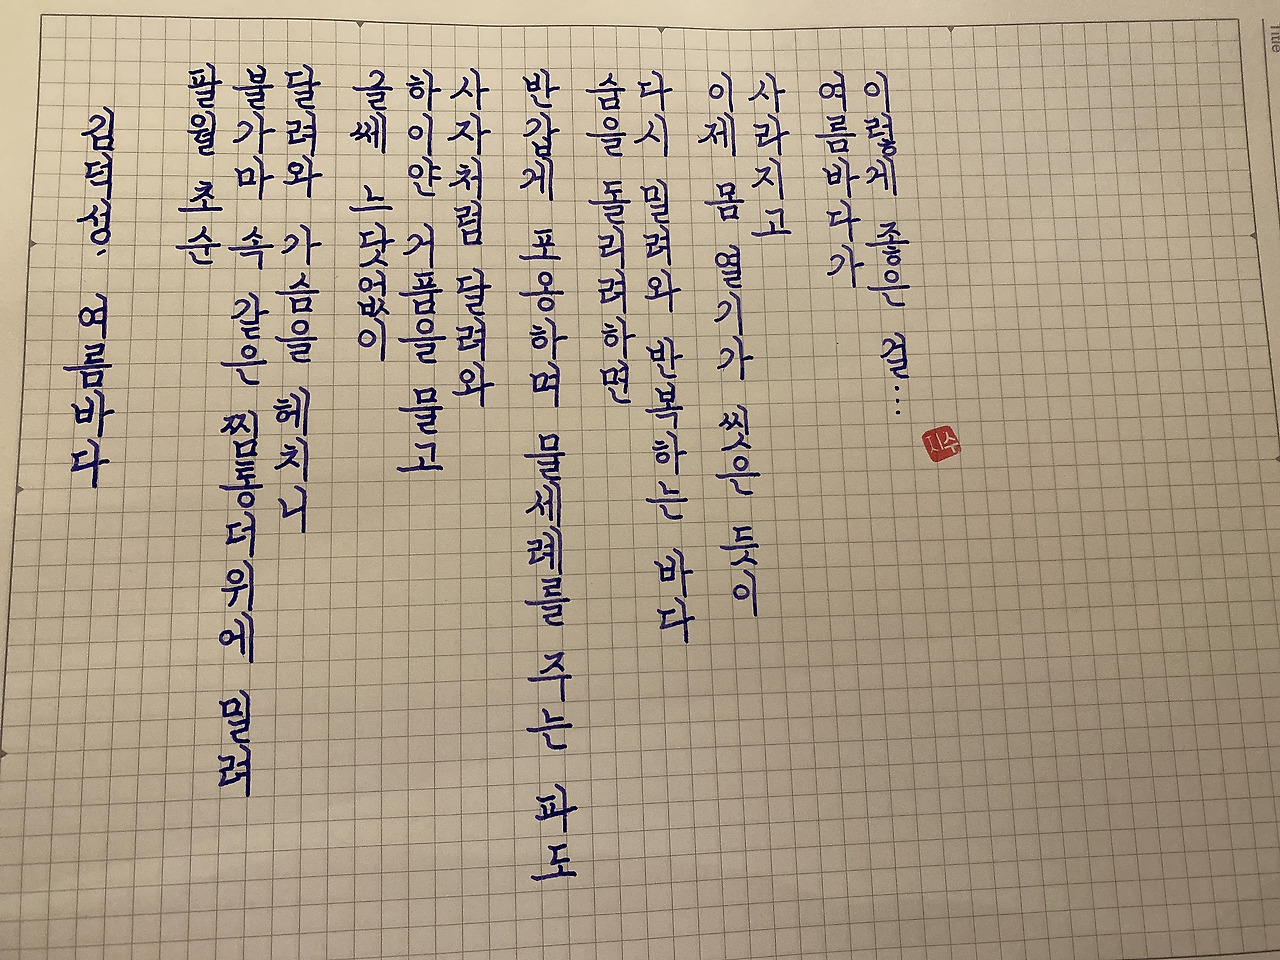 김덕성. 여름바다
팔월 초순
불가마 속 같은 찜통더위에 밀려
달려와 가슴을 헤치니
글쎄 느닷없이
하이얀 거품을 물고
사자처럼 달려와
반갑게 포옹하며 물세례를 주는 파도
숨을 돌리려하면
다시 밀려와 반복하는 바다
이제 몸 열기가 씻은 듯이
사라지고
여름바다가
이렇게 좋은 걸...
지수
Title